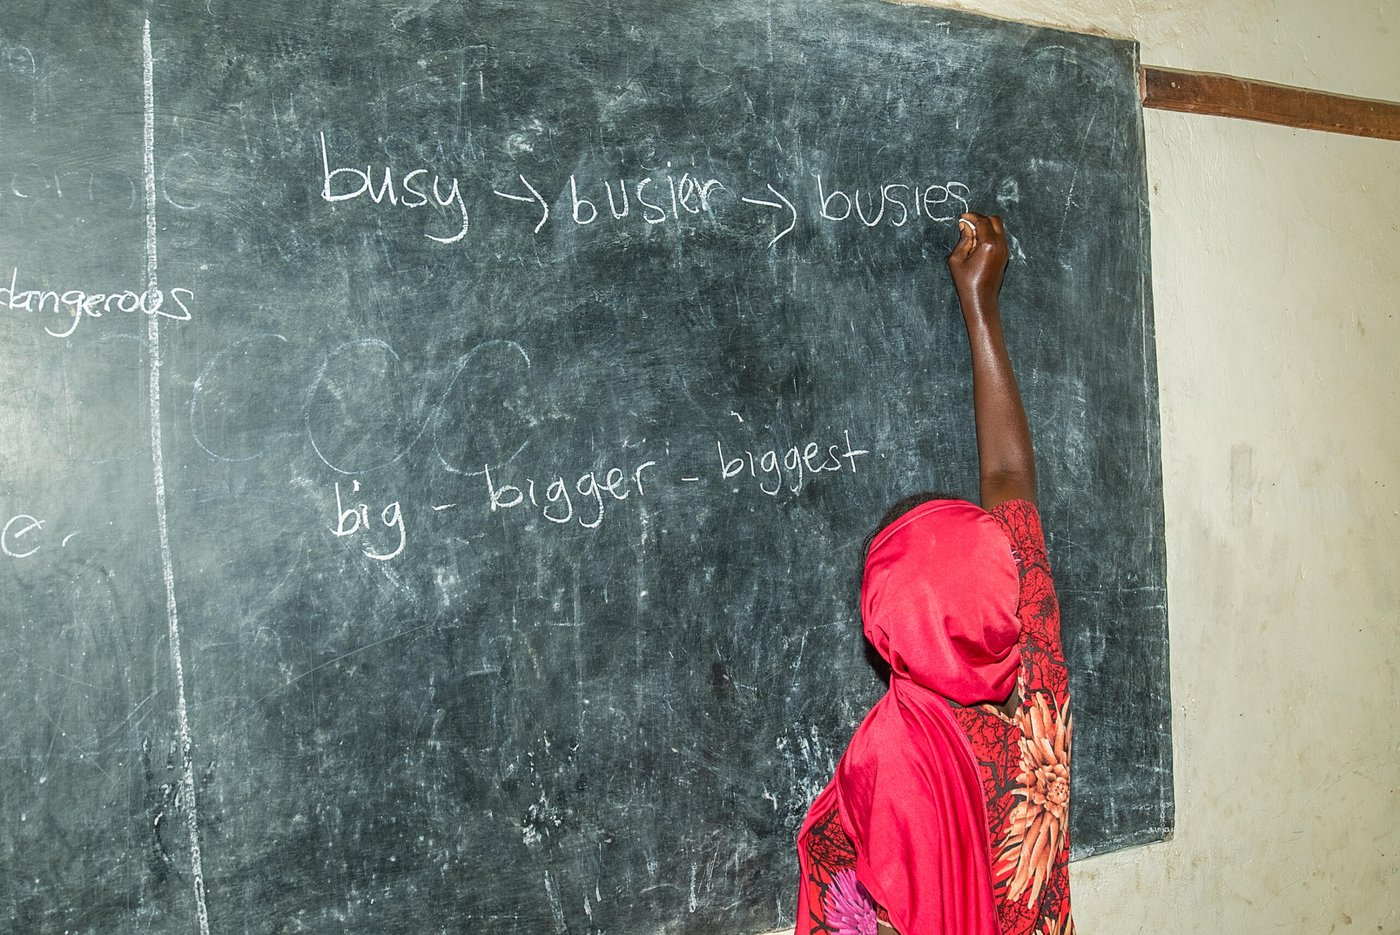 busy → busier → busies
dangerous
big - bigger - biggest
e.